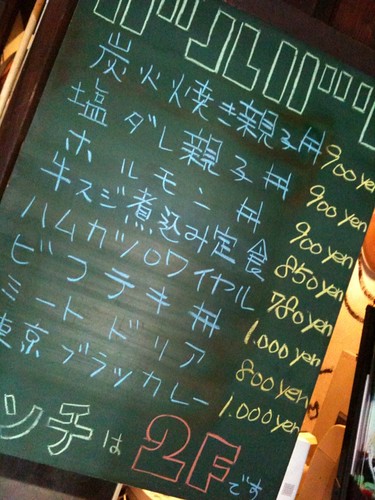 炭火焼き親子丼 900 yen
塩ダレ親子丼 900 yen
ホルモン丼 900 yen
牛スジ煮込み定食 850 yen
ハムカツロワイヤル 780 yen
ビフテキ丼 1.000 yen
ミートドリア 800 yen
東京ブラッカレー 1.000 yen
ンチは2Fです